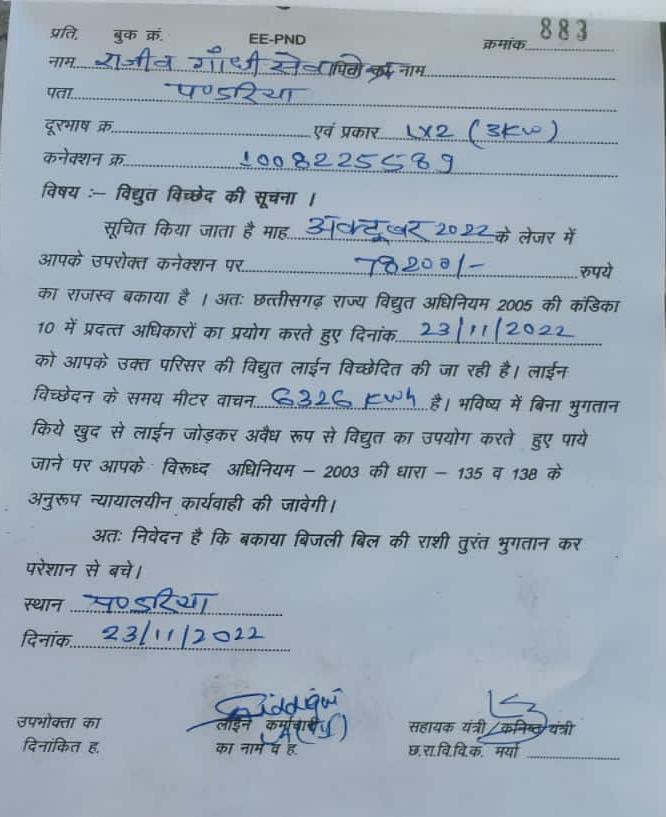 प्रति. बुक क्रं. EE-PND क्रमांक 883
नाम राजीव गाँधी सेवा नाम
पता पण्डरिया
दूरभाष क्र. एवं प्रकार LX2 (3KW)
कनेक्शन क्र. 1008225589
विषय :– विद्युत विच्छेद की सूचना ।
सूचित किया जाता है माह अक्टूबर 2022 के लेजर में
आपके उपरोक्त कनेक्शन पर 78200/- रुपये
का राजस्व बकाया है । अतः छत्तीसगढ़ राज्य विद्युत अधिनियम 2005 की कंडिका
10 में प्रदत्त अधिकारों का प्रयोग करते हुए दिनांक 23/11/2022
को आपके उक्त परिसर की विद्युत लाईन विच्छेदित की जा रही है। लाईन
विच्छेदन के समय मीटर वाचन 6326 KWh है। भविष्य में बिना भुगतान
किये खुद से लाईन जोड़कर अवैध रूप से विद्युत का उपयोग करते हुए पाये
जाने पर आपके विरूध्द अधिनियम – 2003 की धारा – 135 व 138 के
अनुरूप न्यायालयीन कार्यवाही की जावेगी।
अतः निवेदन है कि बकाया बिजली बिल की राशी तुरंत भुगतान कर
परेशान से बचे।
स्थान पण्डरिया
दिनांक 23/11/2022
उपभोक्ता का लाईन कर्मचारी सहायक यंत्री / कनिष्ठ यंत्री
दिनांकित ह. का नाम व ह. छ.रा.वि.वि.कं. मर्या